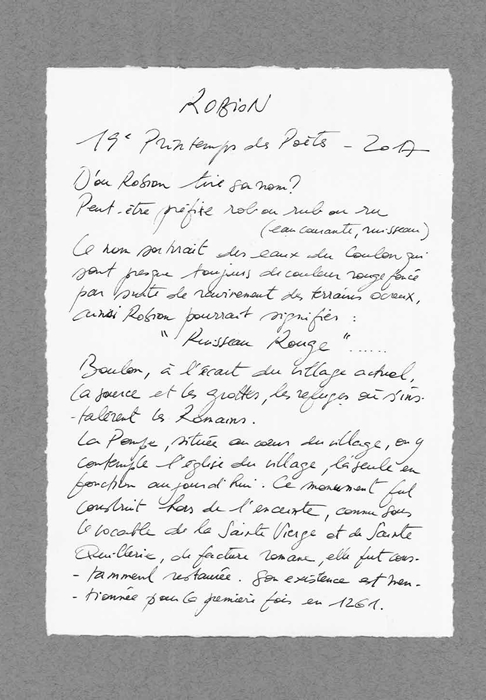 ROBION
19e Printemps des Poètes - 2017
D'où Robion tire son nom?
Peut-être préfixe rob ou rub ou ru
(eau courante, ruisseau)
Ce nom sortirait des eaux du Coulon qui
sont presque toujours de couleur rouge foncé
par suite de ravinement des terrains ocreux,
ainsi Robion pourrait signifier :
" Ruisseau Rouge ".....
Boulon, à l'écart du village actuel,
la source et les grottes, les refuges où s'ins-
-tallèrent les Romains.
La Pompe, située au cœur du village, on y
contemple l'église du village, la seule en
fonction aujourd'hui. Ce monument fut
construit hors de l'enceinte, connu sous
le vocable de la Sainte Vierge et de Sainte
de facture romane, elle fut cons-
-tamment restaurée. Son existence est men-
-tionnée pour la première fois en 1261.